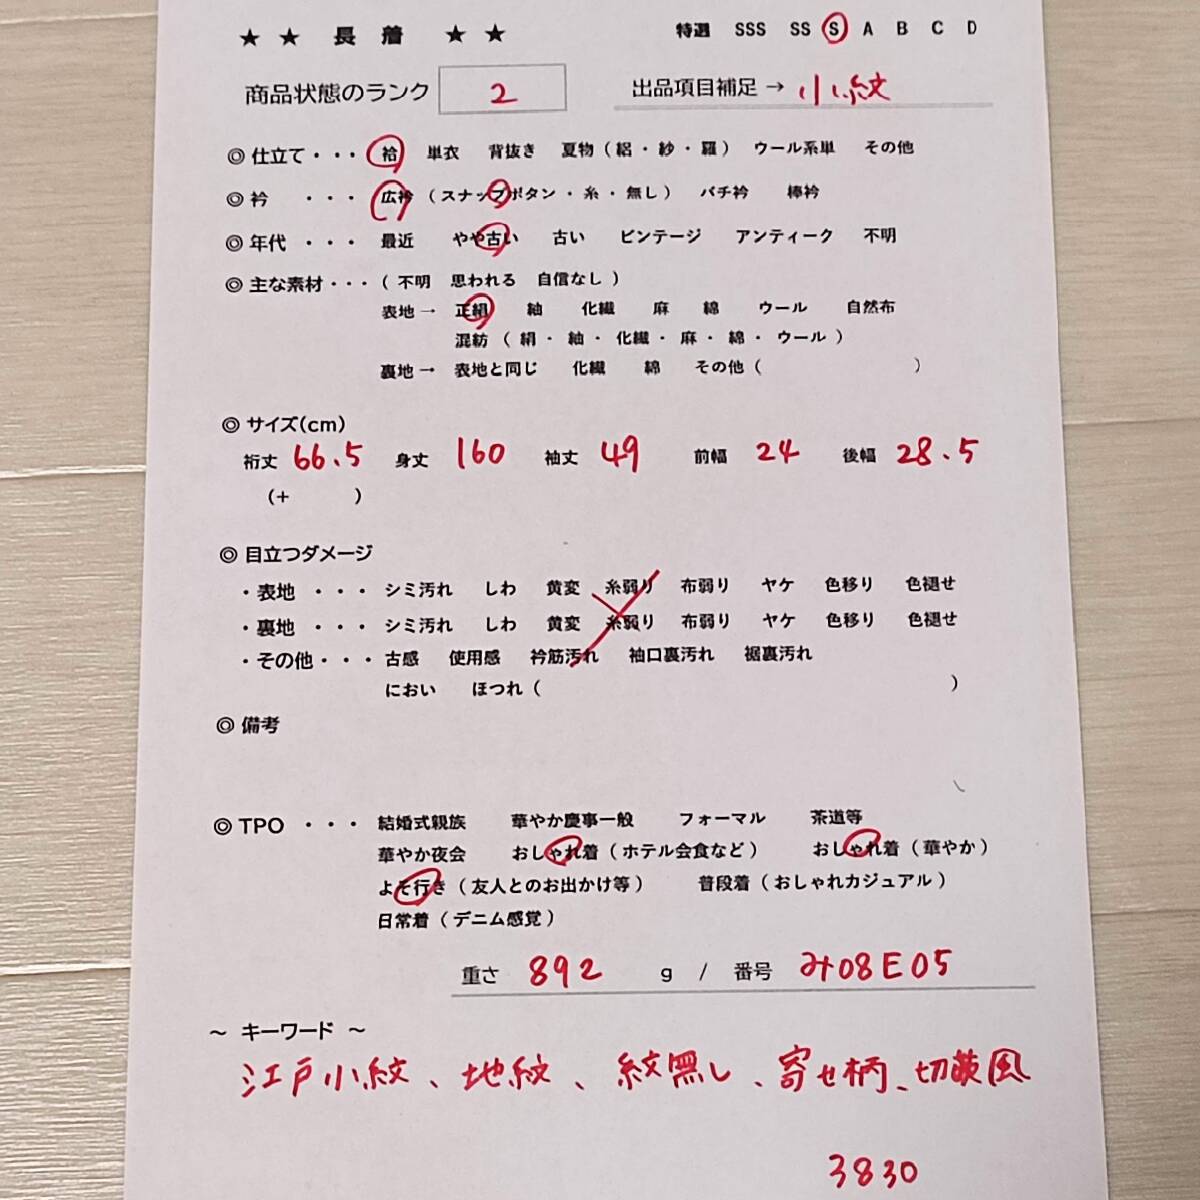 ★ ★ 長 着 ★ ★ 特選 SSS SS S A B C D
商品状態のランク 2 出品項目補足 → 小紋
◎ 仕立て・・・ 袷 単衣 背抜き 夏物（絽・紗・羅） ウール系単 その他
◎ 衿 ・・・ 広衿（スナップボタン・糸・無し） バチ衿 棒衿
◎ 年代 ・・・ 最近 やや古い 古い ビンテージ アンティーク 不明
◎ 主な素材・・・（不明 思われる 自信なし）
表地→ 正絹 紬 化繊 麻 綿 ウール 自然布
混紡（絹・紬・化繊・麻・綿・ウール）
裏地→ 表地と同じ 化繊 綿 その他（ ）
◎ サイズ(cm)
裄丈 66.5 身丈 160 袖丈 49 前幅 24 後幅 28.5
（+ ）
◎ 目立つダメージ
・表地 ・・・ シミ汚れ しわ 黄変 糸弱り 布弱り ヤケ 色移り 色褪せ
・裏地 ・・・ シミ汚れ しわ 黄変 糸弱り 布弱り ヤケ 色移り 色褪せ
・その他・・・ 古感 使用感 衿筋汚れ 袖口裏汚れ 裾裏汚れ
におい ほつれ（ ）
◎ 備考
◎ TPO ・・・ 結婚式親族 華やか慶事一般 フォーマル 茶道等
華やか夜会 おしゃれ着（ホテル会食など） おしゃれ着（華やか）
よそ行き（友人とのお出かけ等） 普段着（おしゃれカジュアル）
日常着（デニム感覚）
重さ 892 g / 番号 み08E05
～ キーワード ～
江戸小紋、地紋、紋無し、寄せ柄、切嵌風
3830